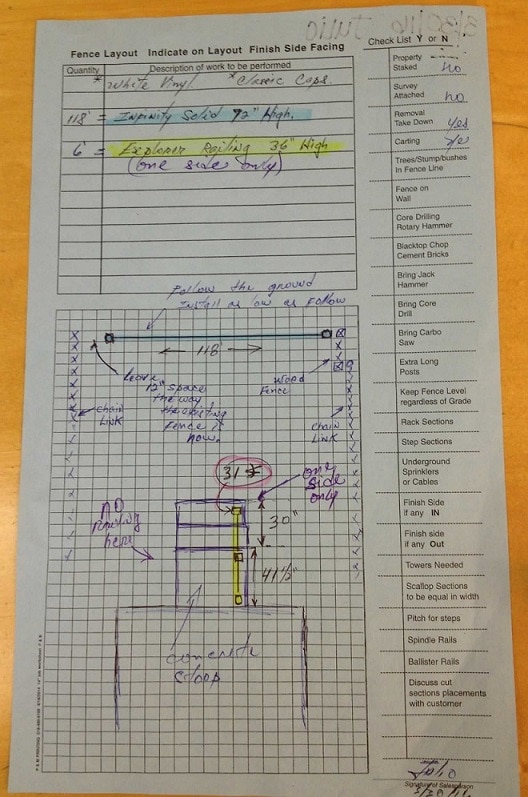 JULIO
Fence Layout Indicate on Layout Finish Side Facing
Check List Y or N
Quantity
Description of work to be performed
* White Vinyl. * Classic Caps.
118' = Infinity Solid 72" High.
6' = Explorer Railing 36" High
(one side only)
Follow the ground
Install as low as Follow
118'
Leave
12" space
the way
the existing
fence is
now.
Wood
Fence
chain
LINK
chain
LINK
31
one
side
only
NO
Railing
here
30"
41 1/2"
concrete
stoop
Property
Staked
no
Survey
Attached
no
Removal
Take Down
yes
Carting
ye
Trees/Stump/bushes
In Fence Line
Fence on
Wall
Core Drilling
Rotary Hammer
Blacktop Chop
Cement Bricks
Bring Jack
Hammer
Bring Core
Drill
Bring Carbo
Saw
Extra Long
Posts
Keep Fence Level
regardless of Grade
Rack Sections
Step Sections
Underground
Sprinklers
or Cables
Finish Side
if any IN
Finish side
if any Out
Towers Needed
Scallop Sections
to be equal in width
Pitch for steps
Spindle Rails
Ballister Rails
Discuss cut
sections placements
with customer
Signature of Salesperson